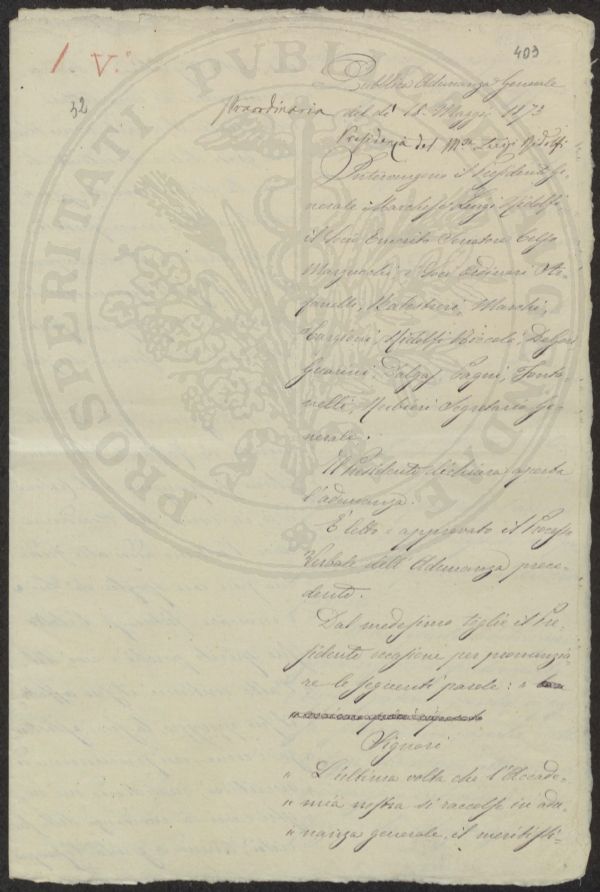 403
1 V.°
32
Pubblica Adunanza Generale
straordinaria del dì 18 Maggio 1873
Presidenza del M.se Luigi Ridolfi
Intervengono il Presidente Ge-
nerale Marchese Luigi Ridolfi,
il Socio Emerito Senatore Celso
Marzucchi, i Soci Ordinari Ste-
fanelli, Balestrieri, Marchi,
Targioni, Ridolfi Niccolò, Del
Guarini, Dalgas, Pagni, Fonta-
nelli, Rubieri Segretario Ge-
nerale.
Il Presidente dichiara aperta
l'adunanza.
È letto e approvato il Processo
Verbale dell'Adunanza prece-
dente.
Dal medesimo toglie il Pre-
sidente occasione per pronunzia-
re le seguenti parole: "
Signori
" L'ultima volta che l'Accade-
" mia nostra si raccolse in adu-
" nanza generale, il meritissi-
PROSPERITATI PUBLICAE AUGENDAE